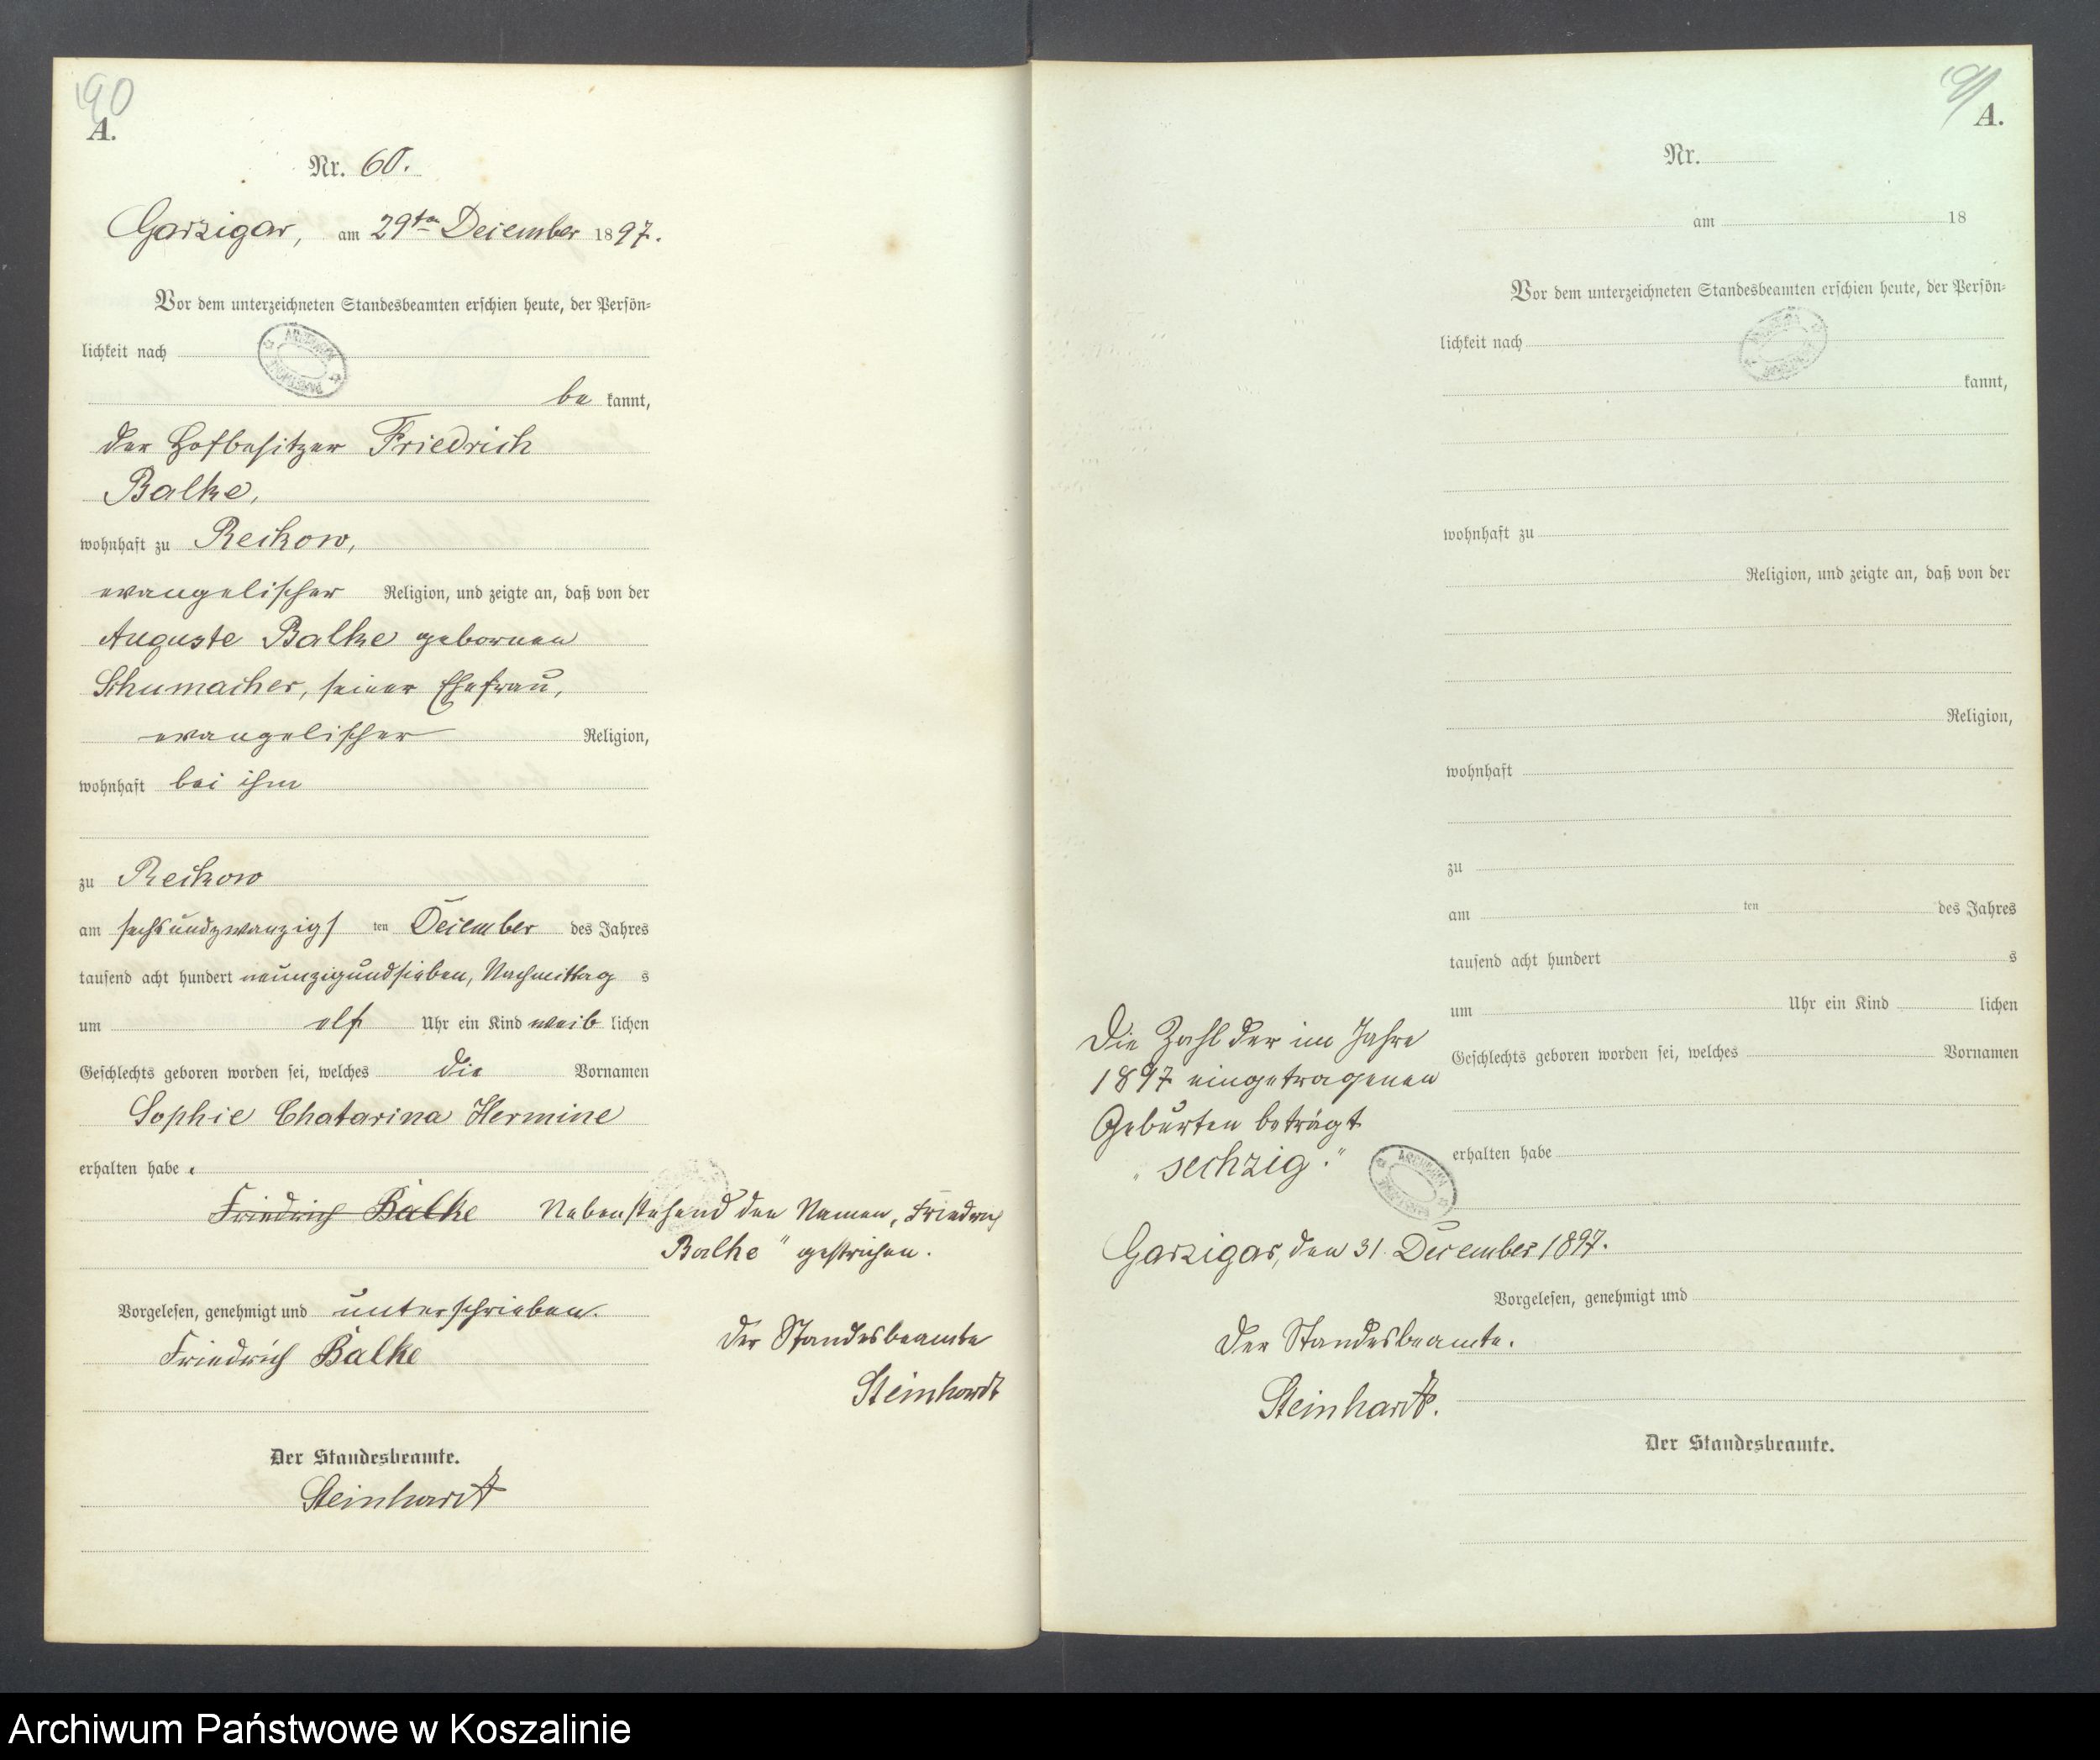 190
A.
Nr. 60.
Garzigar, am 29ten December 1897.
Vor dem unterzeichneten Standesbeamten erschien heute, der Persön=
lichkeit nach
be kannt,
der Hofbesitzer Friedrich
Balke,
wohnhaft zu Reckow,
evangelischer Religion, und zeigte an, daß von der
Auguste Balke gebornen
Schumacher, seiner Ehefrau,
evangelischer Religion,
wohnhaft bei ihm
zu Reckow
am sechsundzwanzigs ten December des Jahres
tausend acht hundert neunzigundsieben, Nachmittag s
um elf Uhr ein Kind weib lichen
Geschlechts geboren worden sei, welches die Vornamen
Sophie Chatarina Hermine
erhalten habe.
Friedrich Balke
Nebenstehend den Namen „Friedrich
Balke" gestrichen.
Vorgelesen, genehmigt und unterschrieben.
Friedrich Balke
Der Standesbeamte
Steinhardt
Der Standesbeamte.
Steinhardt
A.
Nr.
am 18
Vor dem unterzeichneten Standesbeamten erschien heute, der Persön=
lichkeit nach
kannt,
wohnhaft zu
Religion, und zeigte an, daß von der
Religion,
wohnhaft
zu
am ten des Jahres
tausend acht hundert s
um Uhr ein Kind lichen
Geschlechts geboren worden sei, welches Vornamen
erhalten habe
Die Zahl der im Jahre
1897 eingetragenen
Geburten beträgt
„sechzig."
Garzigar, den 31. December 1897.
Vorgelesen, genehmigt und
Der Standesbeamte.
Steinhardt.
Der Standesbeamte.
Archiwum Państwowe w Koszalinie